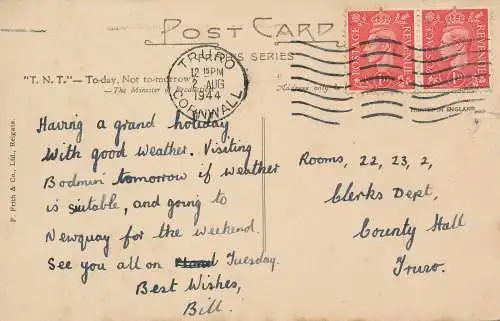 POST CARD
S SERIES
TRURO
12 15 PM
2 AUG
1944
CORNWALL
POSTAGE
REVENUE
POSTAGE
REVENUE
"T. N. T."— To-day, Not to-morrow
—The Minister of Production
Address only to be
PRINTED IN ENGLAND
F. Frith & Co., Ltd., Reigate.
Having a grand holiday
with good weather. Visiting
Bodmin tomorrow if weather
is suitable, and going to
Newquay for the weekend.
See you all on Tuesday.
Best Wishes,
Bill.
Rooms, 22, 23, 2,
Clerks Dept,
County Hall
Truro.